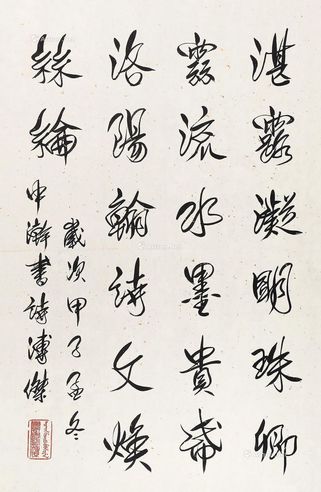 湛露凝明珠卿
雲流水墨貴帋
洛陽翰詩文煥
絲綸
歲次甲子孟冬
中澣書詩溥傑